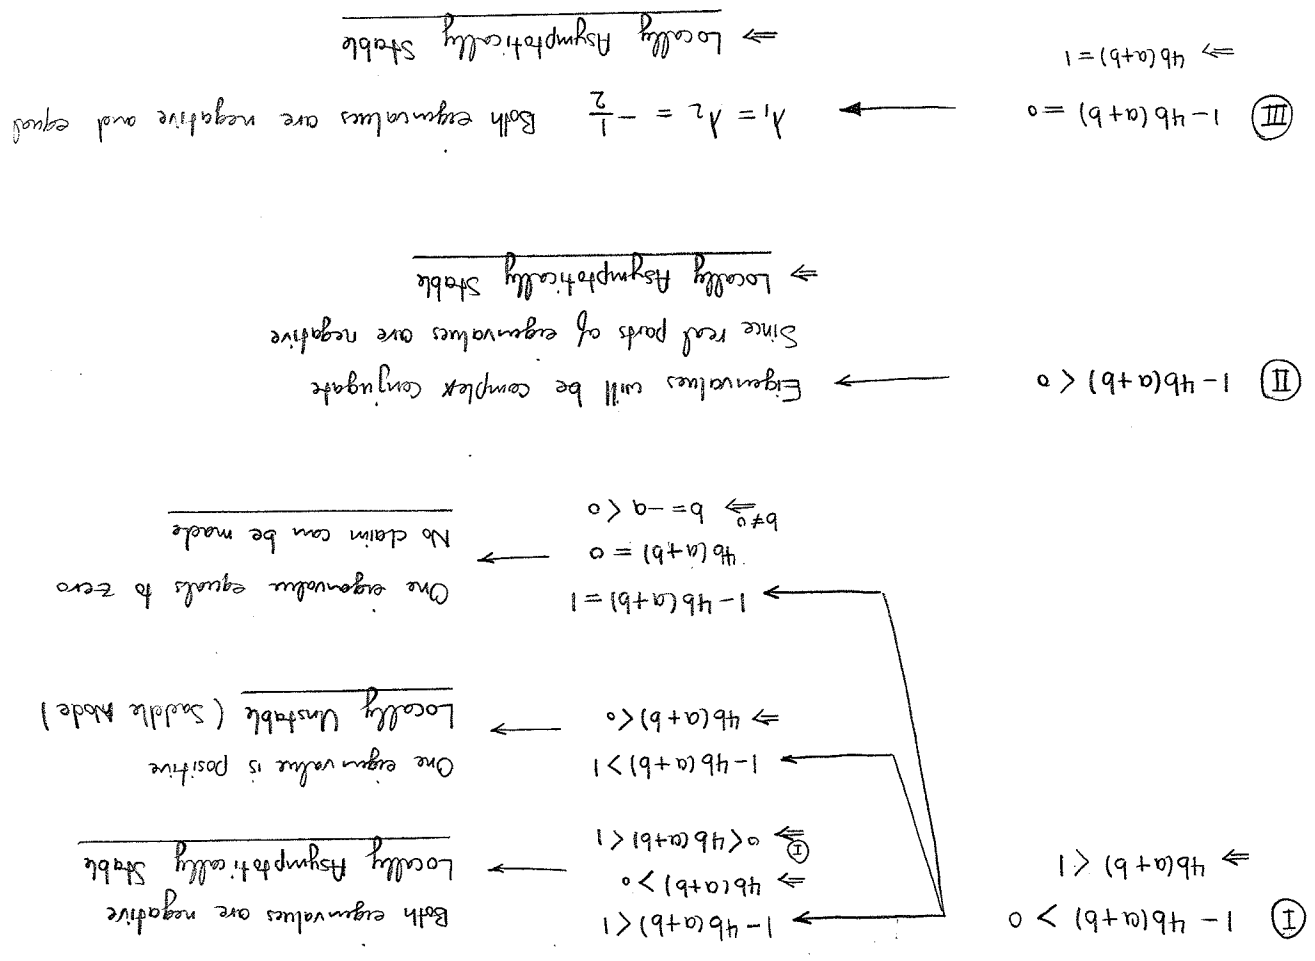 Ⓘ 1-4b(a+b) > 0
⇒ 4b(a+b) < 1
1-4b(a+b)<1
⇒ 4b(a+b)>0
Ⓘ ⇒ 0<4b(a+b)<1
Both eigenvalues are negative
Locally Asymptotically Stable
1-4b(a+b)>1
⇒ 4b(a+b)<0
One eigenvalue is positive
Locally Unstable (Saddle Node)
1-4b(a+b)=1
4b(a+b) = 0
b≠0 ⇒ b=-a<0
One eigenvalue equals to zero
No claim can be made
Ⅱ 1-4b(a+b) < 0
Eigenvalues will be complex conjugate
Since real parts of eigenvalues are negative
⇒ Locally Asymptotically Stable
Ⅲ 1-4b(a+b) = 0
⇒ 4b(a+b)=1
λ₁ = λ₂ = -1/2 Both eigenvalues are negative and equal
⇒ Locally Asymptotically Stable